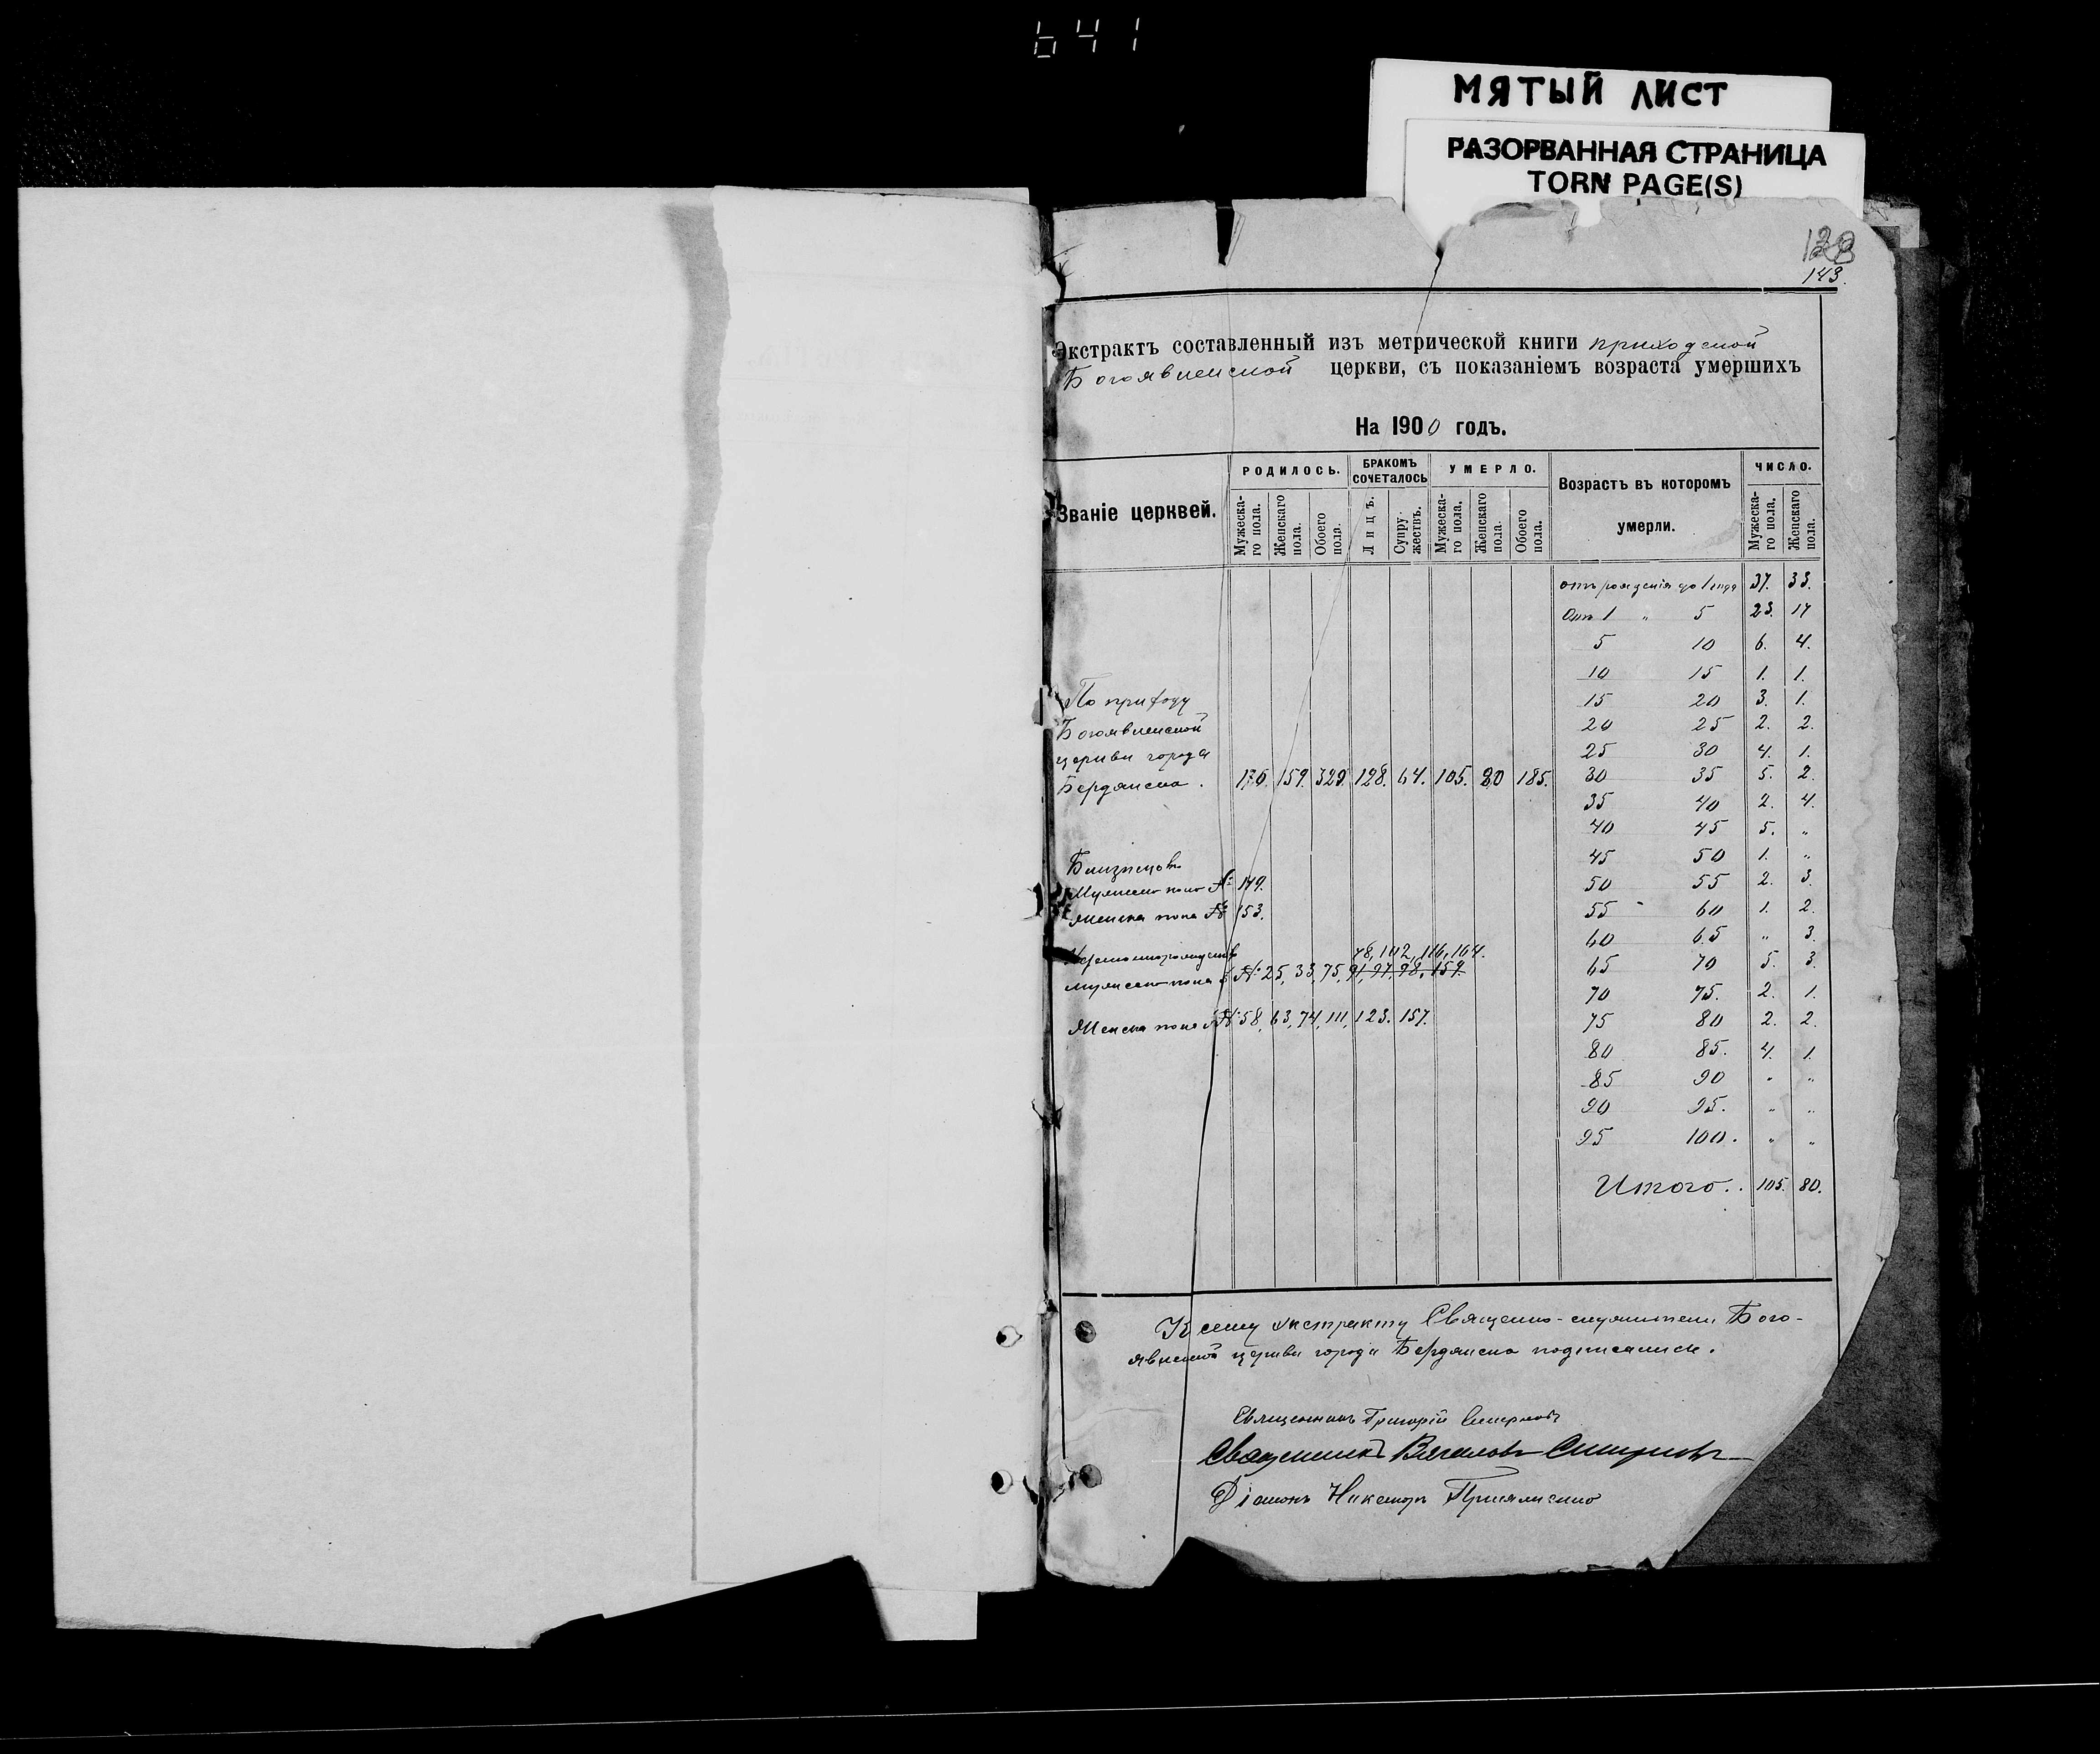 641
МЯТЫЙ ЛИСТ
РАЗОРВАННАЯ СТРАНИЦА
TORN PAGE(S)
143.
Экстрактъ составленный изъ метрической книги приходской
Богоявленской церкви, съ показаніемъ возраста умершихъ
На 1900 годъ.
Званіе церквей. РОДИЛОСЬ. БРАКОМЪ СОЧЕТАЛОСЬ УМЕРЛО. Возрастъ въ которомъ умерли. ЧИСЛО.
Мужеска-го пола. Женскаго пола. Обоего пола. Лицъ. Супру-жествъ. Мужеска-го пола. Женскаго пола. Обоего пола. Мужеска-го пола. Женскаго пола.
отъ рожденія до 1 года 37. 33.
Отъ 1 " 5 23. 17
5 10 6. 4.
10 15 1. 1.
По приходу 15 20 3. 1.
Богоявленской 20 25 2. 2.
церкви города 25 30 4. 1.
Бердянска. 159. 329. 128. 64. 105. 80 185. 30 35 5. 2.
35 40 2. 4.
40 45 5. "
Близнецовъ 45 50 1. "
Мужеска пола № 149. 50 55 2. 3.
Женска пола № 153. 55 60 1. 2.
60 65 " 3.
78, 102, 116, 164.
мужеска пола № 25, 33, 75, 91, 97, 98, 159. 65 70 5. 3.
70 75. 2. 1.
Женска пола № 58, 63, 74, 111, 123. 157. 75 80 2. 2.
80 85. 4. 1.
85 90 " "
90 95. " "
95 100. " "
Итого.. 105. 80.
К сему экстракту Священно-служители Бого-
явленской церкви города Бердянска подписались.
Священникъ Григорій
Священникъ Смирновъ
Діаконъ